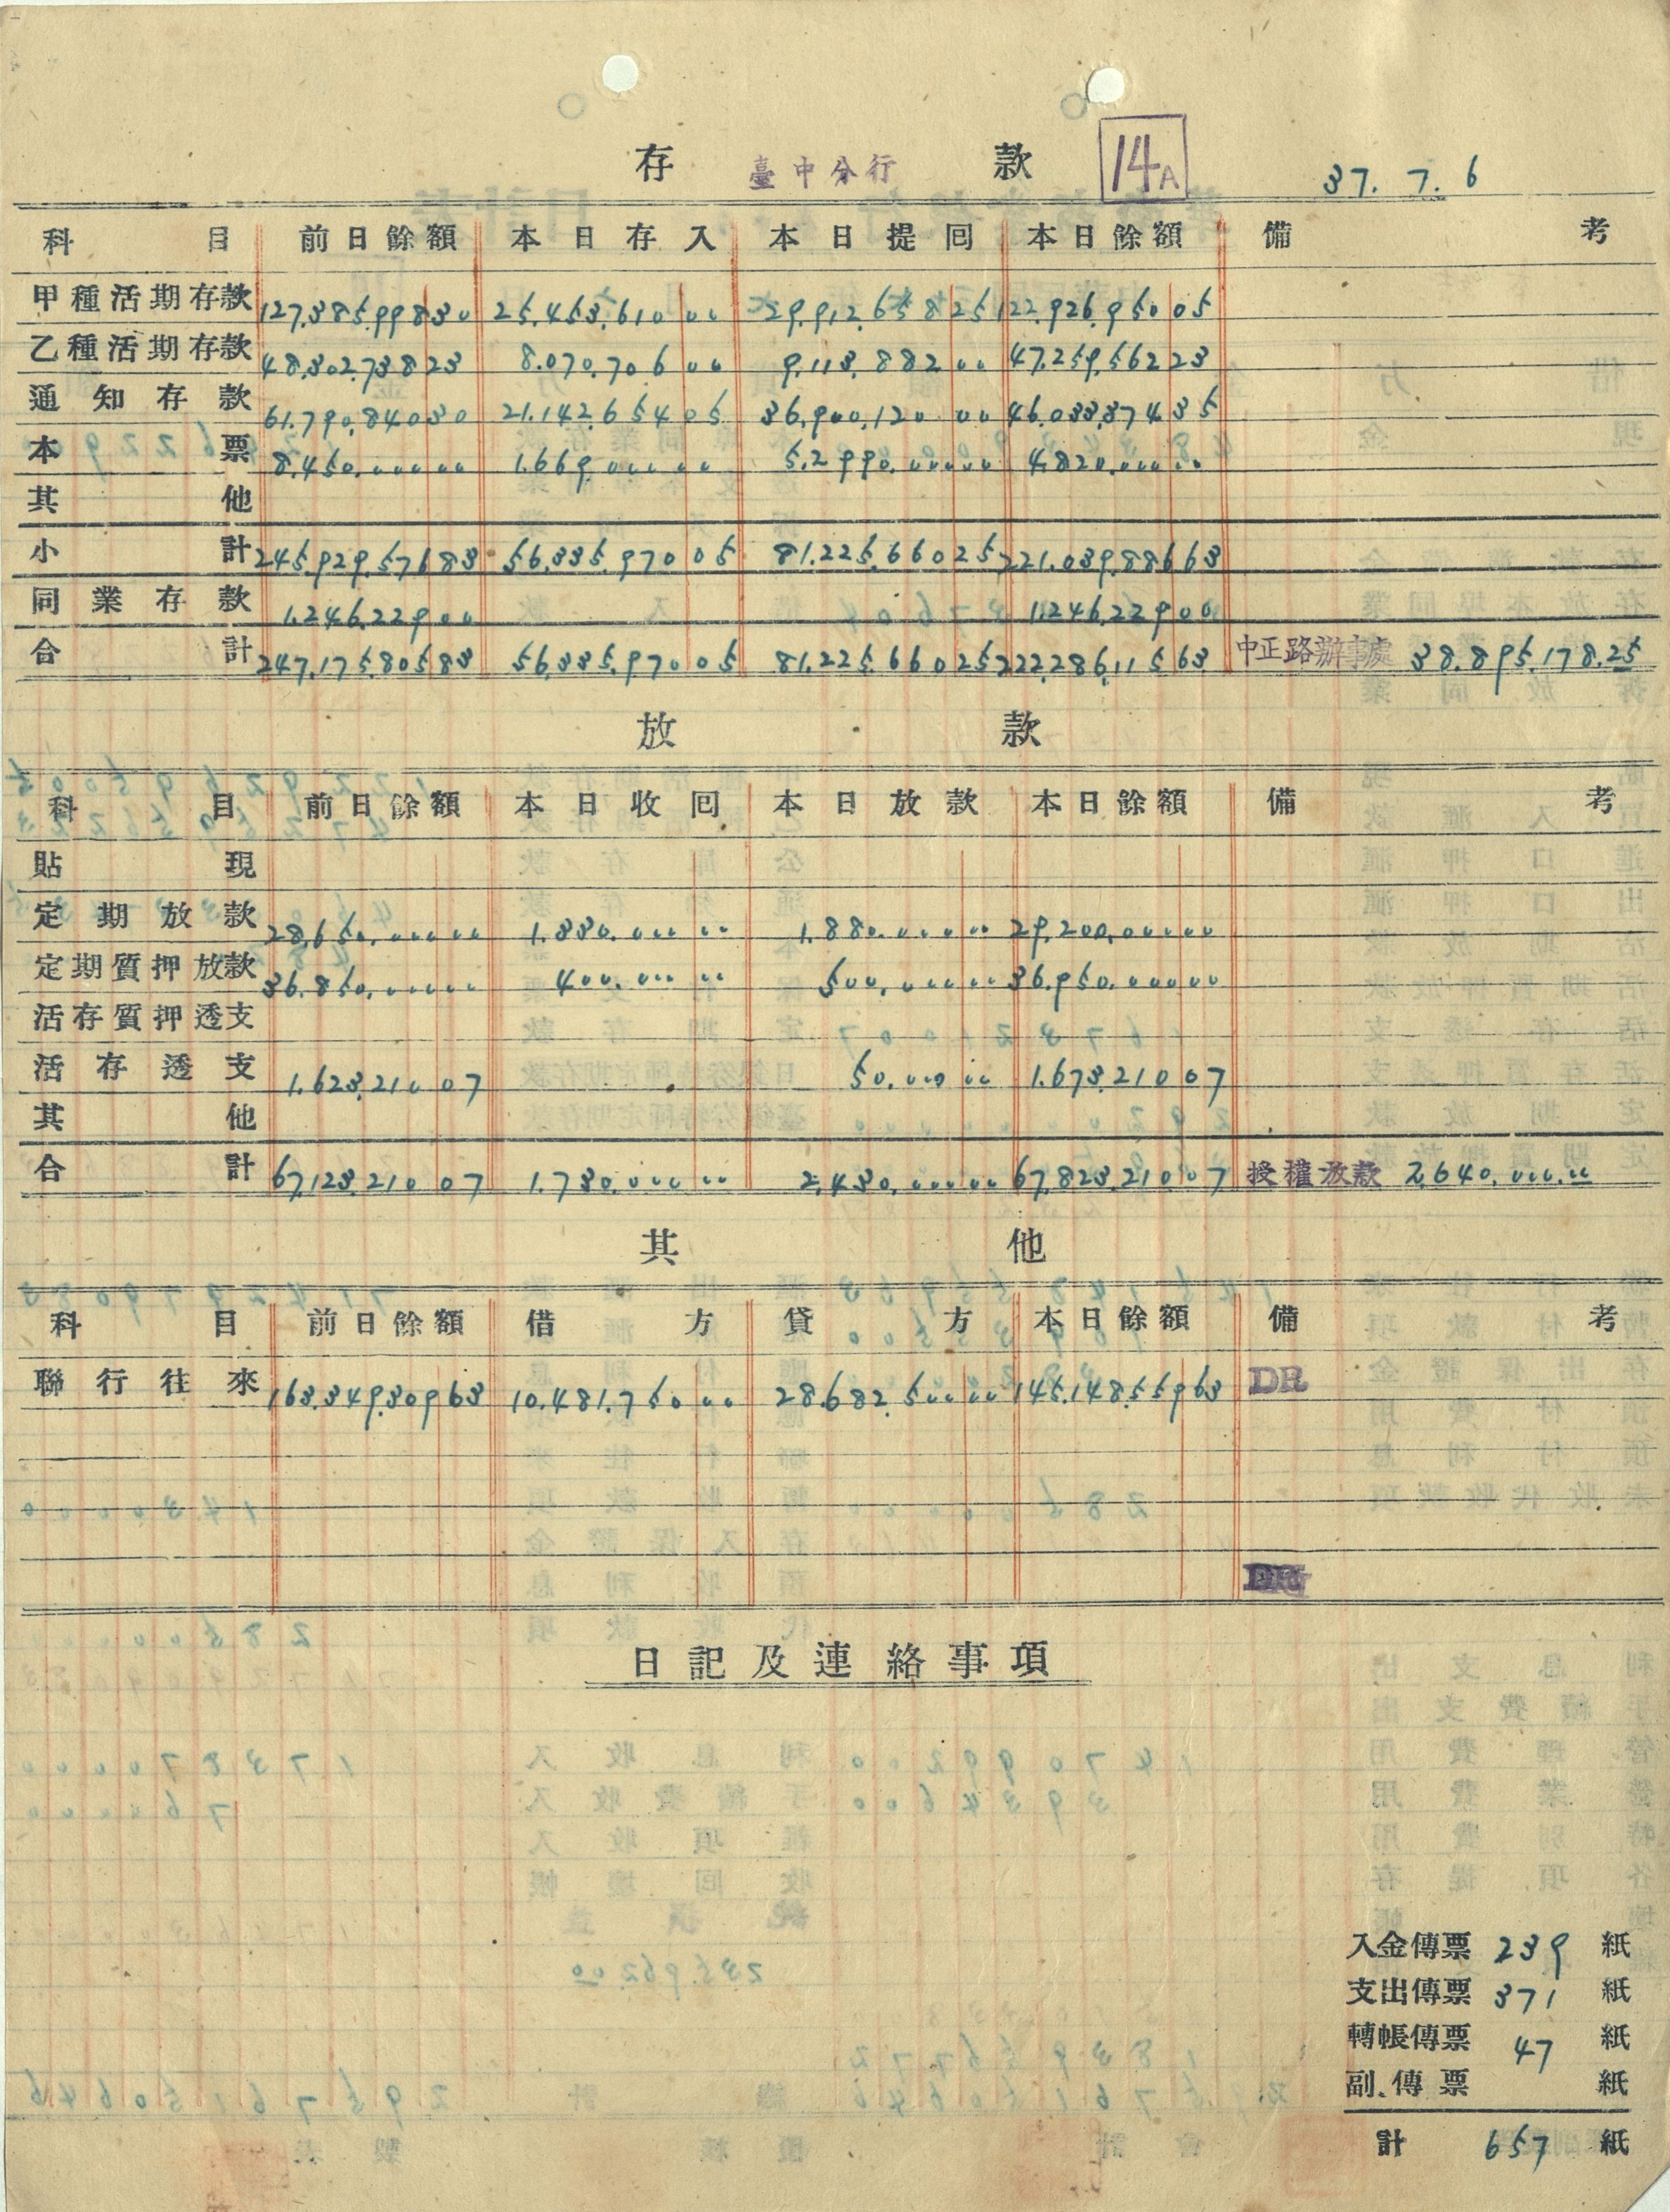 存 臺中分行 款 14A 37.7.6
科目 前日餘額 本日存入 本日提回 本日餘額 備考
甲種活期存款 127.385.998 30 25.453.610 00 29.912.658 25 122.926.950 05
乙種活期存款 48.302.738 23 8.070.706 00 9.113.882 00 47.259.562 23
通知存款 61.790.840 30 21.142.654 05 36.900.120 00 46.033.374 35
本票 8.450.000 00 1.669.000 00 5.299.000 00 4.820.000 00
其他
小計 245.929.576 83 56.335.970 05 81.225.660 25 221.039.886 63
同業存款 1.246.229 00 1.246.229 00
合計 247.175.805 83 56.335.970 05 81.225.660 25 222.286.115 63 中正路辦事處 38.895.178.25
放款
科目 前日餘額 本日收回 本日放款 本日餘額 備考
貼現
定期放款 28.650.000 00 1.330.000 00 1.880.000 00 29.200.000 00
定期質押放款 36.850.000 00 400.000 00 500.000 00 36.950.000 00
活存質押透支
活存透支 1.623.210 07 50.000 00 1.673.210 07
其他
合計 67.123.210 07 1.730.000 00 2.430.000 00 67.823.210 07 授權放款 2.640.000.00
其他
科目 前日餘額 借方 貸方 本日餘額 備考
聯行往來 163.349.309 63 10.481.750 00 28.682.500 00 145.148.559 63 DR
日記及連絡事項
入金傳票 239 紙
支出傳票 371 紙
轉帳傳票 47 紙
副傳票 紙
計 657 紙